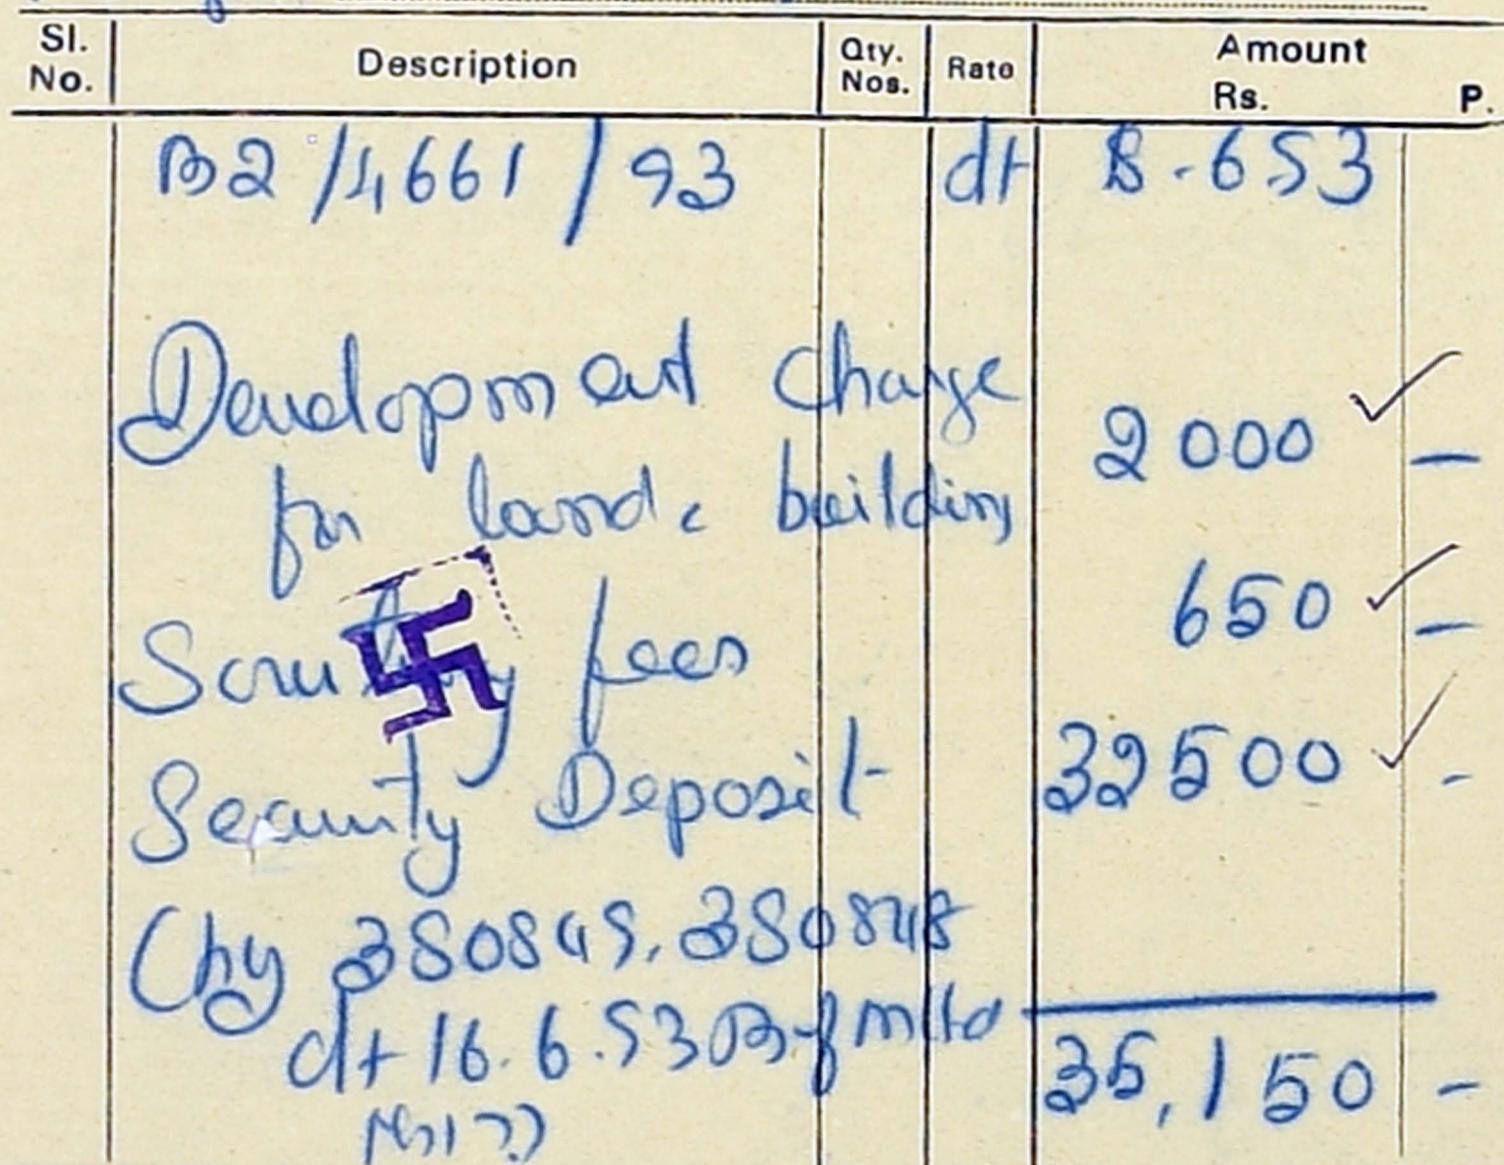 Sl. No. Description Qty. Nos. Rate Amount Rs. P.
B2/4661/93 dt 8.6.93
Development Charge
for land & building 2000 -
Scrutiny fees 650 -
Security Deposit 32500 -
Chq 380849, 380848
dt 16.6.93 B of
35,150 -